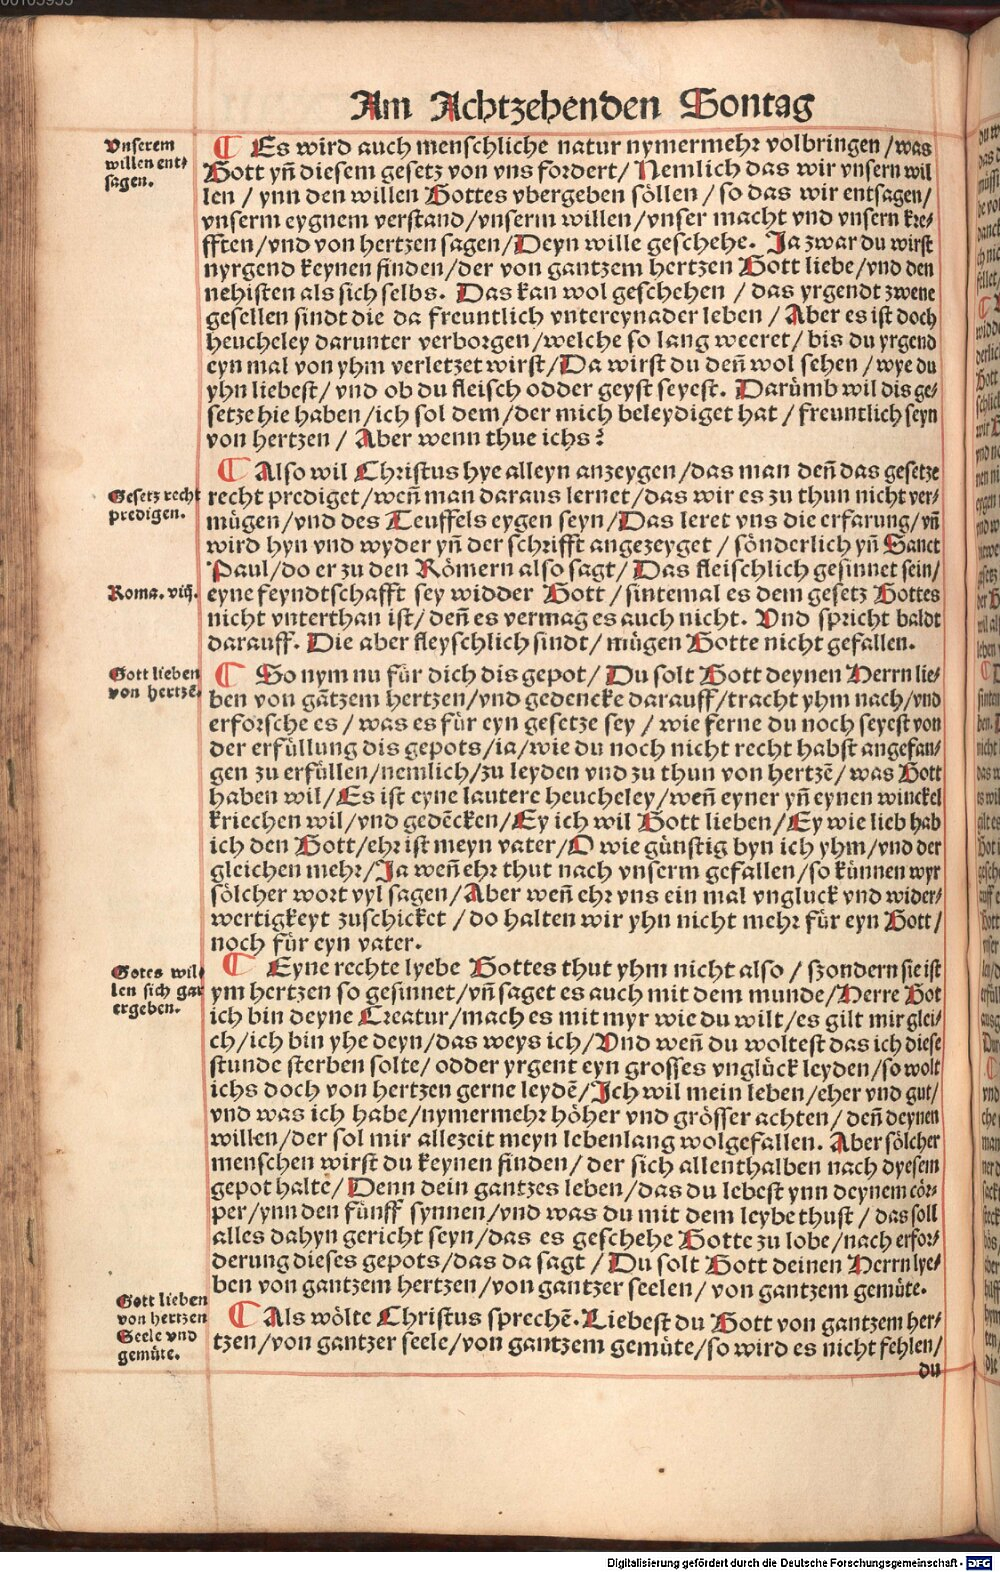 Am Achtzehenden Sontag
Vnserem
willen ent⸗
sagen.
¶ Es wird auch menschliche natur nymermehr volbringen / was
Gott yñ diesem gesetz von vns fordert / Nemlich das wir vnsern wil
len / ynn den willen Gottes vbergeben söllen / so das wir entsagen /
vnserm eygnem verstand / vnserm willen / vnser macht vnd vnsern kre⸗
fften / vnd von hertzen sagen / Deyn wille geschehe. Ja zwar du wirst
nyrgend keynen finden / der von gantzem hertzen Gott liebe / vnd den
nehisten als sich selbs. Das kan wol geschehen / das yrgendt zwene
gesellen sindt die da freuntlich vntereynader leben / Aber es ist doch
heucheley darunter verborgen / welche so lang weeret / bis du yrgend
eyn mal von yhm verletzet wirst / Da wirst du deñ wol sehen / wye du
yhn liebest / vnd ob du fleisch odder geyst seyest. Darümb wil dis ge⸗
setze hie haben / ich sol dem / der mich beleydiget hat / freuntlich seyn
von hertzen / Aber wenn thue ichs?
Gesetz recht
predigen.
Roma. viij.
¶ Also wil Christus hye alleyn anzeygen / das man deñ das gesetze
recht prediget / weñ man daraus lernet / das wir es zu thun nicht ver⸗
mügen / vnd des Teuffels eygen seyn / Das leret vns die erfarung / vñ
wird hyn vnd wyder yñ der schrifft angezeyget / sönderlich yñ Sanct
Paul / do er zu den Römern also sagt / Das fleischlich gesinnet sein /
eyne feyndtschafft sey widder Gott / sintemal es dem gesetz Gottes
nicht vnterthan ist / deñ es vermag es auch nicht. Vnd spricht baldt
darauff. Die aber fleyschlich sindt / mügen Gotte nicht gefallen.
Gott lieben
von hertzē.
¶ So nym nu für dich dis gepot / Du solt Gott deynen Herrn lie⸗
ben von gātzem hertzen / vnd gedencke darauff / tracht yhm nach / vnd
erforsche es / was es für eyn gesetze sey / wie ferne du noch seyest von
der erfüllung dis gepots / ia / wie du noch nicht recht habst angefan⸗
gen zu erfüllen / nemlich / zu leyden vnd zu thun von hertzē / was Gott
haben wil / Es ist eyne lautere heucheley / weñ eyner yñ eynen winckel
kriechen wil / vnd gedēcken / Ey ich wil Gott lieben / Ey wie lieb hab
ich den Gott / ehr ist meyn vater / O wie günstig byn ich yhm / vnd der
gleichen mehr / Ja weñ ehr thut nach vnserm gefallen / so künnen wyr
sölcher wort vyl sagen / Aber weñ ehr vns ein mal vngluck vnd wider⸗
wertigkeyt zuschicket / do halten wir yhn nicht mehr für eyn Gott /
noch für eyn vater.
Gotes wil⸗
len sich gar
ergeben.
¶ Eyne rechte lyebe Gottes thut yhm nicht also / szondern sie ist
ym hertzen so gesinnet / vñ saget es auch mit dem munde / Herre Got
ich bin deyne Creatur / mach es mit myr wie du wilt / es gilt mir glei⸗
ch / ich bin yhe deyn / das weys ich / Vnd weñ du woltest das ich diese
stunde sterben solte / odder yrgent eyn grosses vnglück leyden / so wolt
ichs doch von hertzen gerne leydē / Ich wil mein leben / eher vnd gut /
vnd was ich habe / nymermehr höher vnd grösser achten / deñ deynen
willen / der sol mir allezeit meyn lebenlang wolgefallen. Aber sölcher
menschen wirst du keynen finden / der sich allenthalben nach dyesem
gepot halte / Denn dein gantzes leben / das du lebest ynn deynem cör⸗
per / ynn den fünff synnen / vnd was du mit dem leybe thust / das soll
alles dahyn gericht seyn / das es geschehe Gotte zu lobe / nach erfor⸗
derung dieses gepots / das da sagt / Du solt Gott deinen Herrn lye⸗
ben von gantzem hertzen / von gantzer seelen / von gantzem gemüte.
Gott lieben
von hertzen
Seele vnd
gemüte.
¶ Als wölte Christus sprechē. Liebest du Gott von gantzem her⸗
tzen / von gantzer seele / von gantzem gemüte / so wird es nicht fehlen /
du
Digitalisierung gefördert durch die Deutsche Forschungsgemeinschaft - DFG